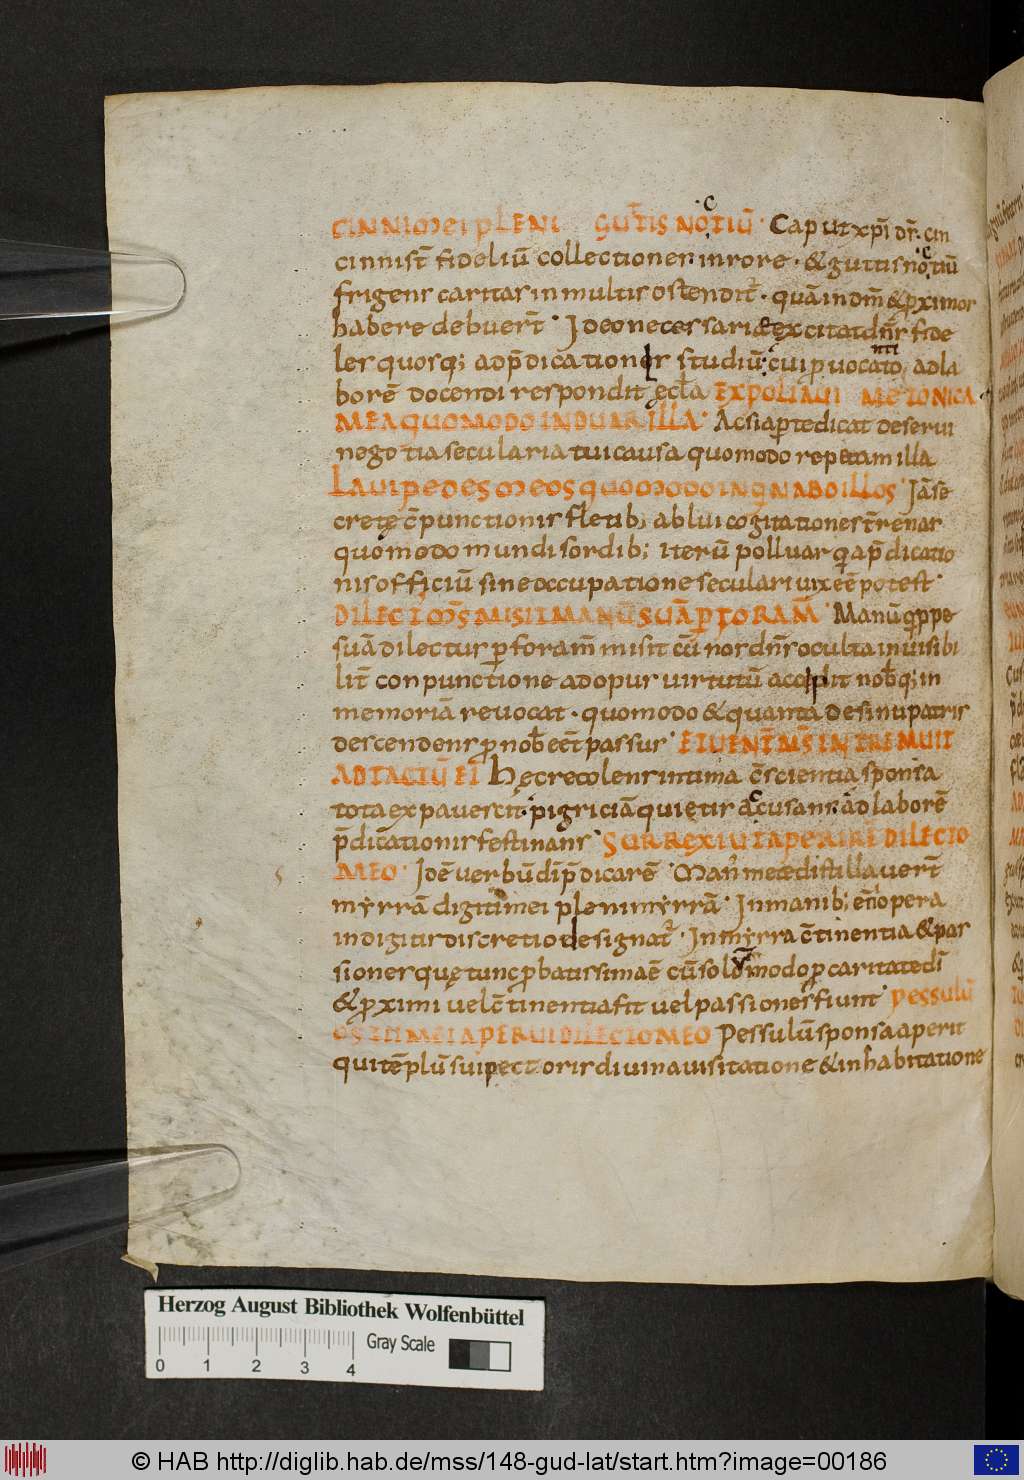 CINNI MEI PLENI GUTIS NOTIŪ · Caput xp̄i dr̄. cin
cinni st̄ fideliū collectiones in rore · & guttis noctiū
frigens caritas in multis ostendit᷑ · quā in dn̄i & p̱ximos
habere debuer̄t · Ideo necessaria excitat dn̄s fide
les quosq; ad p̄dicationis studiū; cui ꝓuocanti ad la
borē docendi respondit ęccl̄a EXPOLIAUI ME TONICA
MEA QUOMODO INDUAR ILLA · Ac si aꝑte dicat deserui
negotia secularia tui causa quomodo repetam illa
LAUI PEDES MEOS QUOMODO INQNABO ILLOS · Iā se
cretę c̄punctionis fletib; ablui cogitationes t̄renas
quomodo mundi sordib; iterū polluar q a p̄dicatio
nis officiū sine occupatione seculari uix eē potest ·
DILECT MS̄ MISIT MANŪ SUĀ P FORAM̄ · Manū qippe
suā dilectus ꝑ foram̄ misit cū nos dn̄s oculta inuisibi
lit̄ conpunctione ad opus uirtutū accendit nob̄q; in
memoriā reuocat · quomodo & quanta de sinu patris
descendens ꝓ nob̄ eēt passus · ET UENT̄ MS̄ INTREMUIT
AD TACTŪ EI Hęc recolens intima c̄scientia sponsa
tota expauescit · pigriciā quietis accusans · ad laborē
p̄dicationis festinans · SURREXI UT APERIRĒ DILECTO
MEO · Id ē uerbū dī p̄dicarē · Man᷒ meae distillauer̄t
myrrā digiti mei pleni myrrā · In manib; eni opera
in digitis discretio designat᷑ · In myrra c̄tinentia & pas
siones quę tunc ꝓbatissima ē cū solōmodo ꝓ caritate dī
& ꝓximi uel c̄tinentia fit uel passiones fiunt · PESSULŪ
OSTII MEI APERUI DILECTO MEO Pessulū sponsa aperit
qui tēplū sui pectoris diuina uisitatione & inhabitatione
Herzog August Bibliothek Wolfenbüttel
Gray Scale
0 1 2 3 4
© HAB http://diglib.hab.de/mss/148-gud-lat/start.htm?image=00186